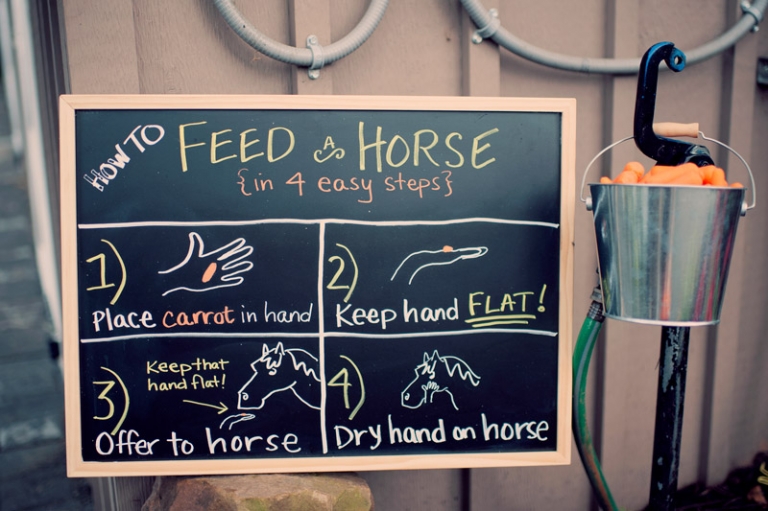 HOW TO FEED A HORSE
{in 4 easy steps}
1)
Place carrot in hand
2)
Keep hand FLAT!
3)
Keep that
hand flat!
Offer to horse
4)
Dry hand on horse